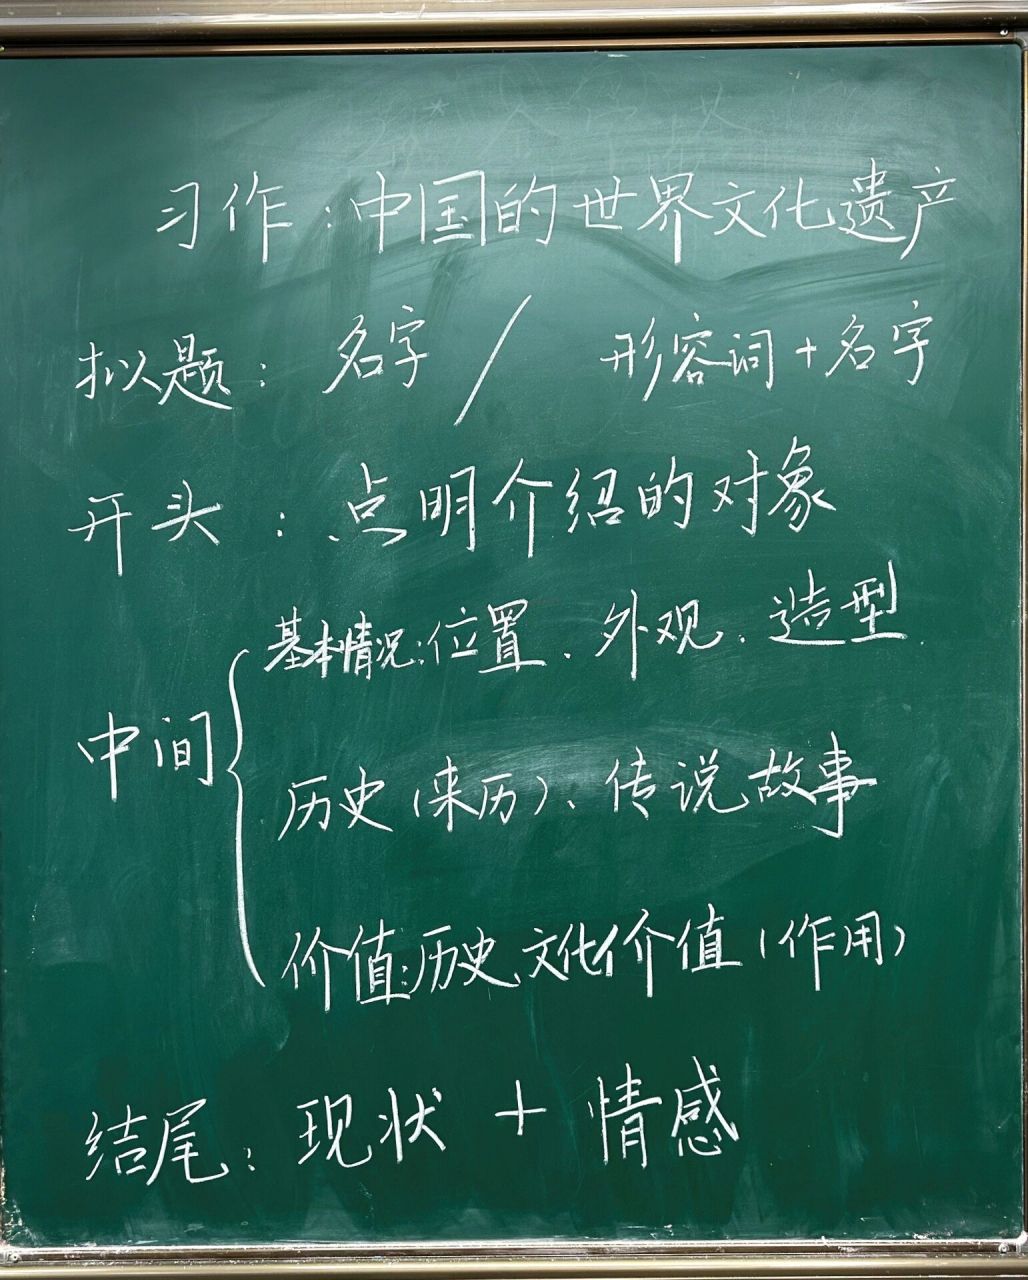 习作：中国的世界文化遗产
拟题： 名字 / 形容词+名字
开头：点明介绍的对象
基本情况：位置、外观、造型
中间
历史（来历）、传说故事
价值：历史、文化价值（作用）
结尾：现状 + 情感